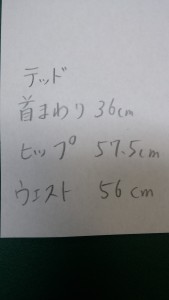 テッド
首まわり 36cm
ヒップ 57.5cm
ウェスト 56cm